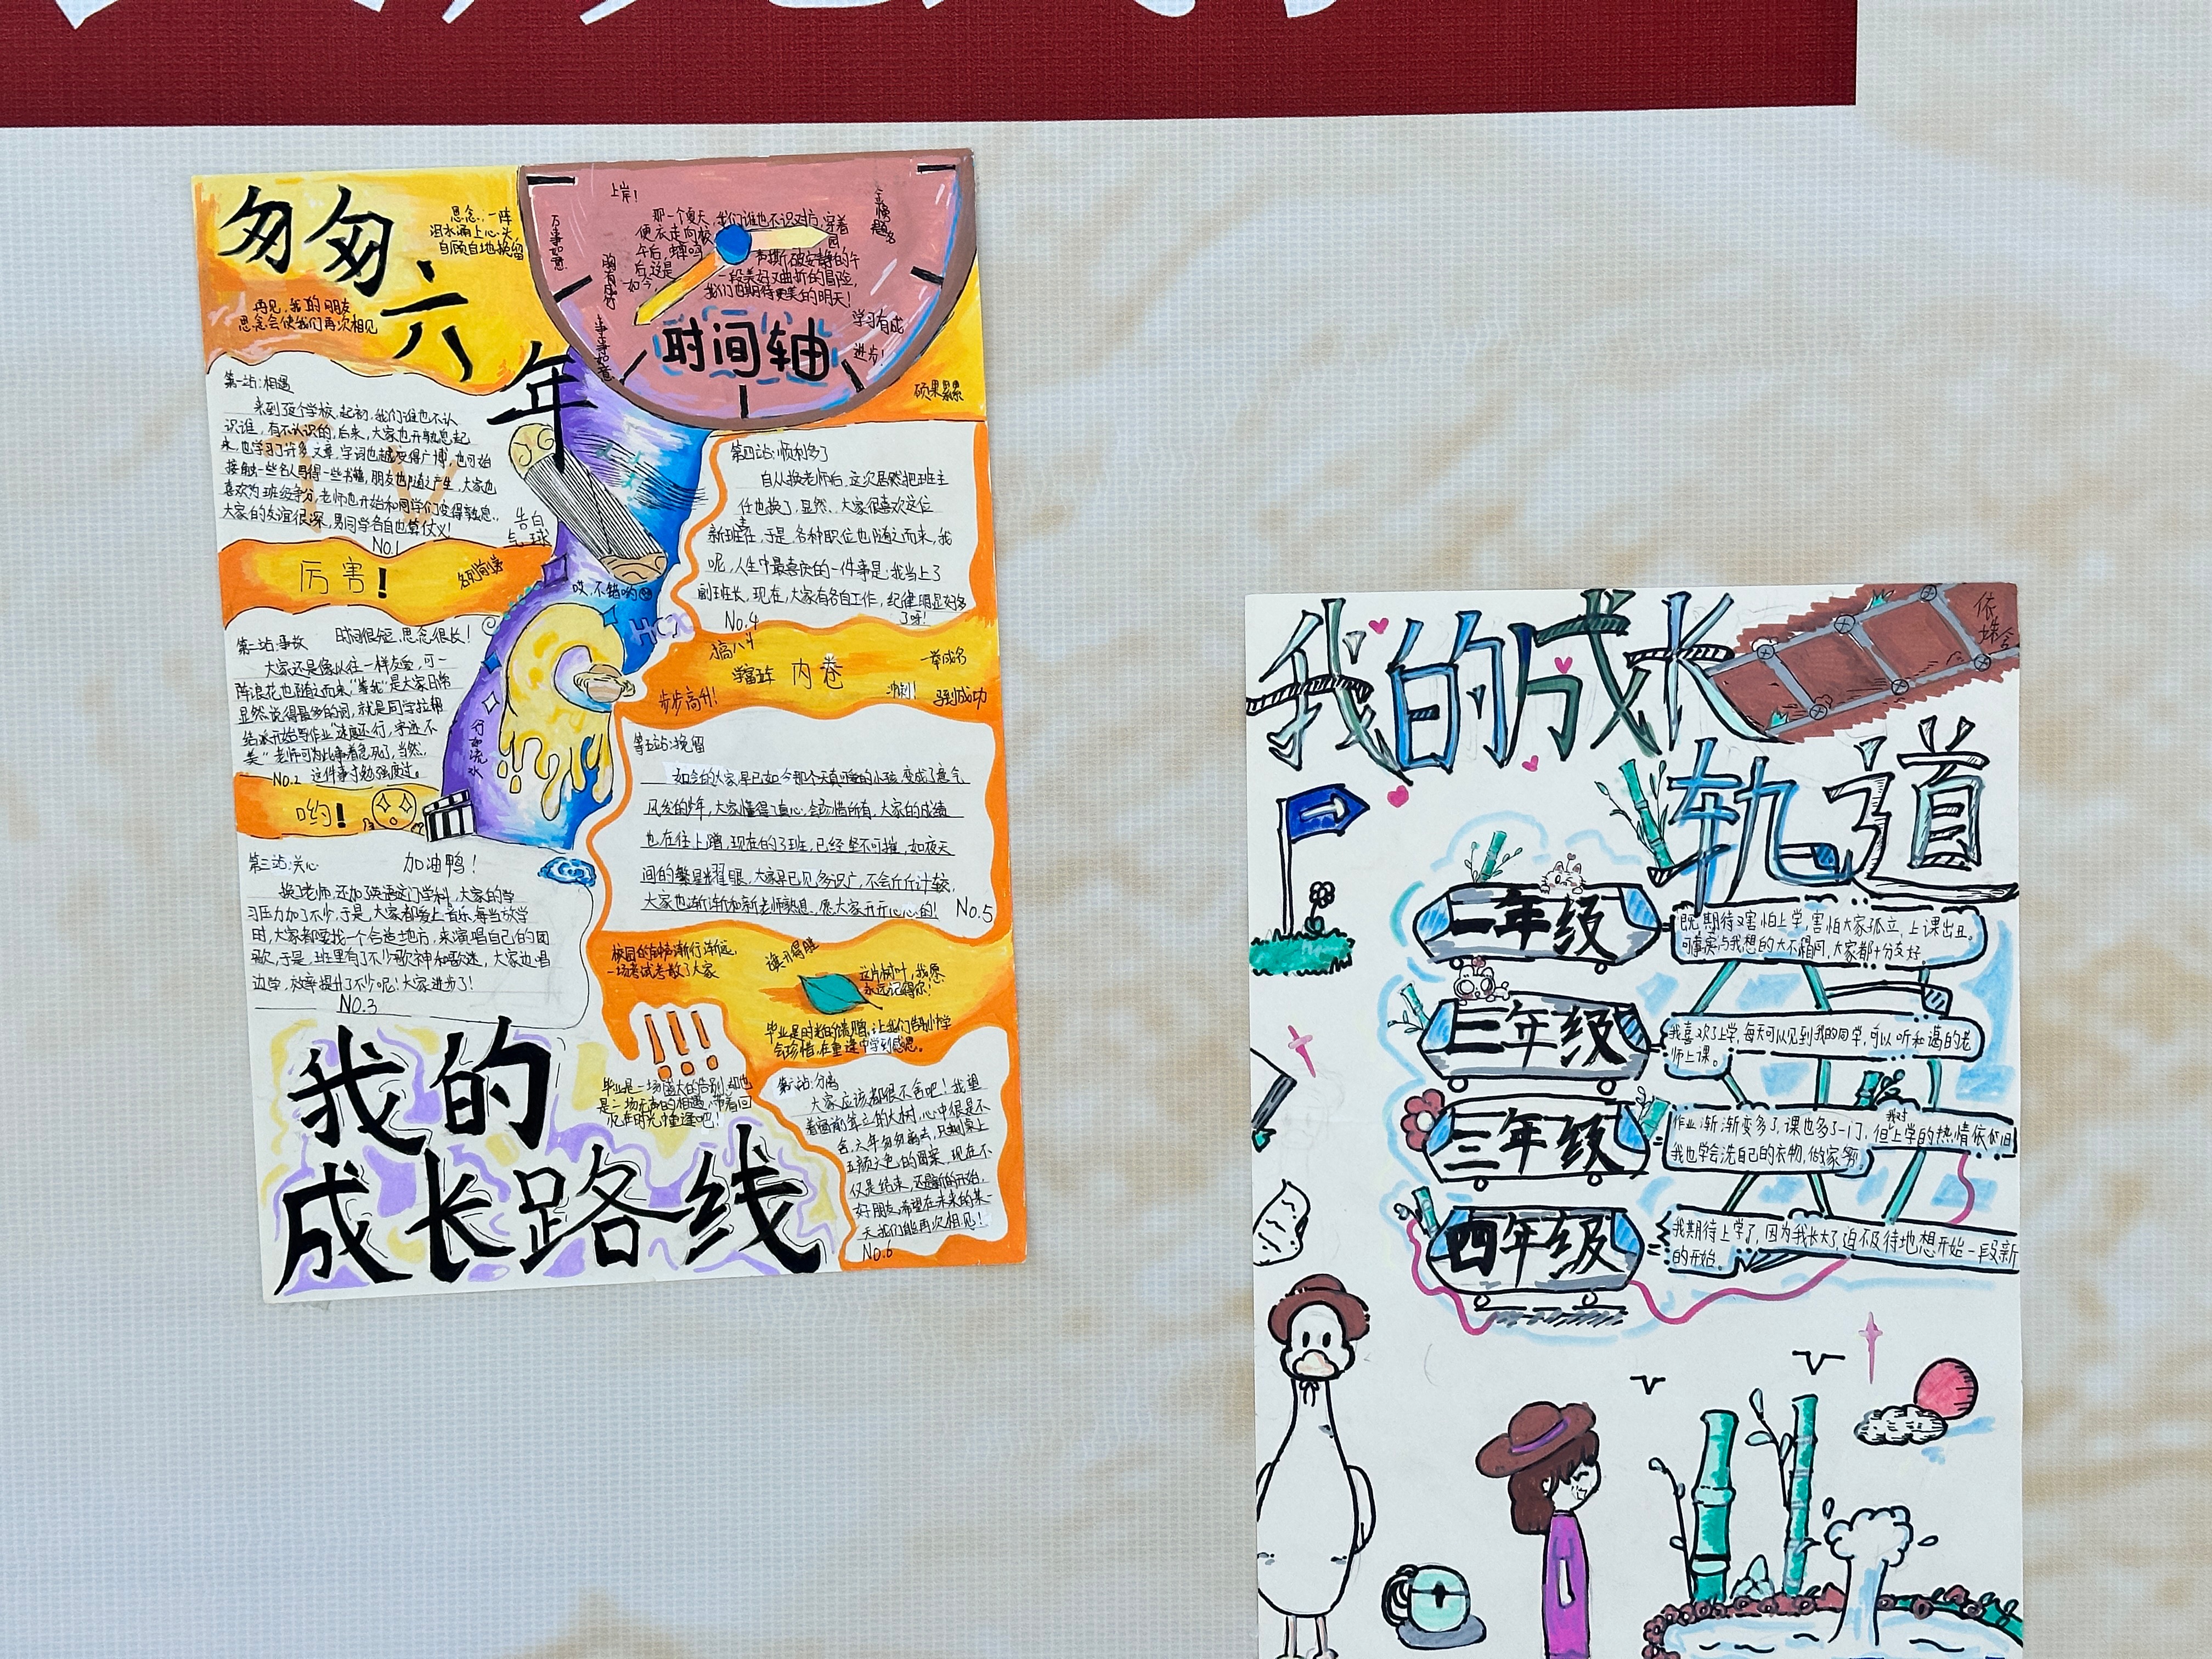 匆匆六年
思念,一阵
泪水涌上心头
自顾自地挽留
再见,我的朋友
思念会使我们再次相见
上岸!
万事如意
胸有成竹
事事如意
金榜题名
那一个夏天,我们谁也不识对方,穿着
便衣走向校园
午后,蝉鸣声撕破安静的午
后,这是一段美好又曲折的冒险,
如今,我们也期待更美的明天!
时间轴
学习有成
进步!
硕果累累
第一站:相遇
来到这个学校,起初,我们谁也不认
识谁,有不认识的,后来,大家也开始熟悉起
来,也学习了许多文章,字词也越变得广博,也开始
接触一些名人写得一些书籍,朋友也随之产生,大家也
喜欢为班级争分,老师也开始和同学们变得熟悉.,
大家的友谊很深,男同学各自也算仗义!
No.1
告白
气球
厉害!
名列前茅
哎,不错哟
第二站:事故
时间很短,思念很长!
大家还是像以往一样友爱,可一
阵浪花也随之而来,"等我"是大家日常
显然说得最多的词,就是同学拉帮
结派开始写作业"速度还行,字迹不
美"老师可为此事着急死了,当然,
No.2 这件事才勉强度过。
行如流水
哟!
第三站:关心
加油鸭!
换了老师,还加了英语这门学科,大家的学
习压力加了不少,于是,大家都爱上音乐,每当放学
时,大家都要找一个合适地方,来演唱自己的团
歌,于是,班里有了不少歌神和歌迷,大家边唱
边学,效率提升了不少呢!大家进步了!
No.3
第四站:顺利多了
自从换老师后,这次居然把班主
任也换了,显然、大家很喜欢这位
新班主任,于是,各种职位也随之而来,我
呢,人生中最喜庆的一件事是:我当上了
副班长,现在,大家有各自工作,纪律明显好多
了呀!
No.4
才高八斗
学富五车
内卷
一举成名
步步高升!
冲刺!
马到成功
第五站:挽留
如今的大家,早已如今那个天真可爱的小孩,变成了意气
风发的少年,大家懂得了真心,会珍惜所有,大家的成绩
也在往上蹭,现在的了班,已经坚不可摧,如夜天
间的繁星耀眼,大家早已见多识广,不会斤斤计较,
大家也渐渐和新老师熟悉,愿大家开开心心的!
No.5
校园的有情渐行渐远,
一场考试考散了大家
旗开得胜
这片树叶,我愿
永远记得你!
毕业是时光的馈赠,让我们告别中学
会珍惜,在重逢中学到感恩。
!!!
毕业是一场盛大的告别,却也
是一场无声的相遇,带着回
忆在时光中重逢吧!
第六站:分离
大家应该都很不舍吧!我望
着窗前伫立的大树,心中很是不
舍,六年匆匆离去,只剩桌上
五颜六色的图案,现在不
仅是结束,还是新的开始,
好朋友,希望在未来的某一
天我们能再次相见!
No.6
我的
成长路线
我的成长
轨道
一年级
既期待又害怕上学,害怕大家孤立,上课出丑,
可事实与我想的大不相同,大家都十分友好。
二年级
我喜欢了上学,每天可以见到我的同学,可以听和蔼的老
师上课。
三年级
作业渐渐变多了,课也多了一门,但我对上学的热情依旧
我也学会洗自己的衣物,做家务。
四年级
我期待上学了,因为我长大了,迫不及待地想开始一段新
的开始。